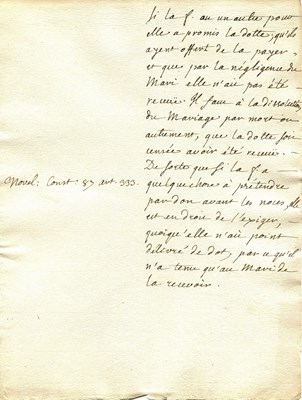 Si la f. ou un autre pour
elle a promis la dotte, qu'ils
ayent offert de la payer
et que par la négligence du
Mari elle n'aie pas été
recuie. Il faut à la dissolution
du Mariage par mort ou
autrement, que la dotte soit
censée avoir été recuie.
De sortes que si la f. a
Novel: Const: 87 art 333.
quelque chose à prétendre
par don avant les noces, elle
est en droit de l'exiger,
quoiqu'elle n'aie point
délivré de dot, par ce qu'il
n'a tenu qu'au Mari de
la recevoir.